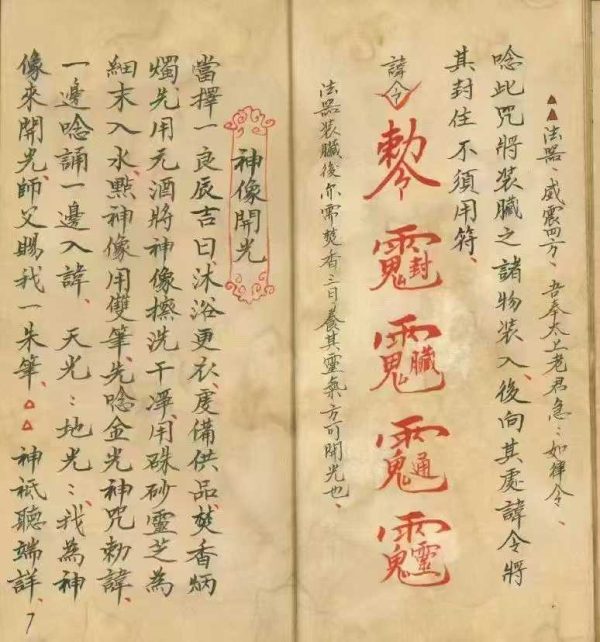 ▲▲法器、威震四方、吾奉太上老君急：如律令、
唸此咒將装臟之諸物装入、後向其處諱令將
其封住不須用符、
諱令
勅令 封 臟 通 靈
法器装臟後尔需焚香三日養其靈氣方可開光也、
神像開光
當擇一良辰吉日、沐浴更衣、度備供品、焚香炳
燭、先用无酒將神像擦洗干淨、用硃砂靈芝為
細末入水、點神像用雙筆、先唸金光神咒勅諱、
一邊唸誦一邊入諱、天光：地光：、我為神
像來開光、師父賜我一朱筆、△△神祇聽端詳、
7